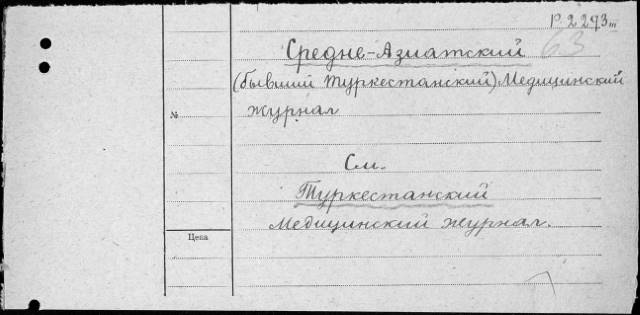 р. 2 293 т
63
Средне-Азиатский
(бывший Туркестанский) Медицинский
№ журнал
См.
Туркестанский
Медицинский журнал.
Цена